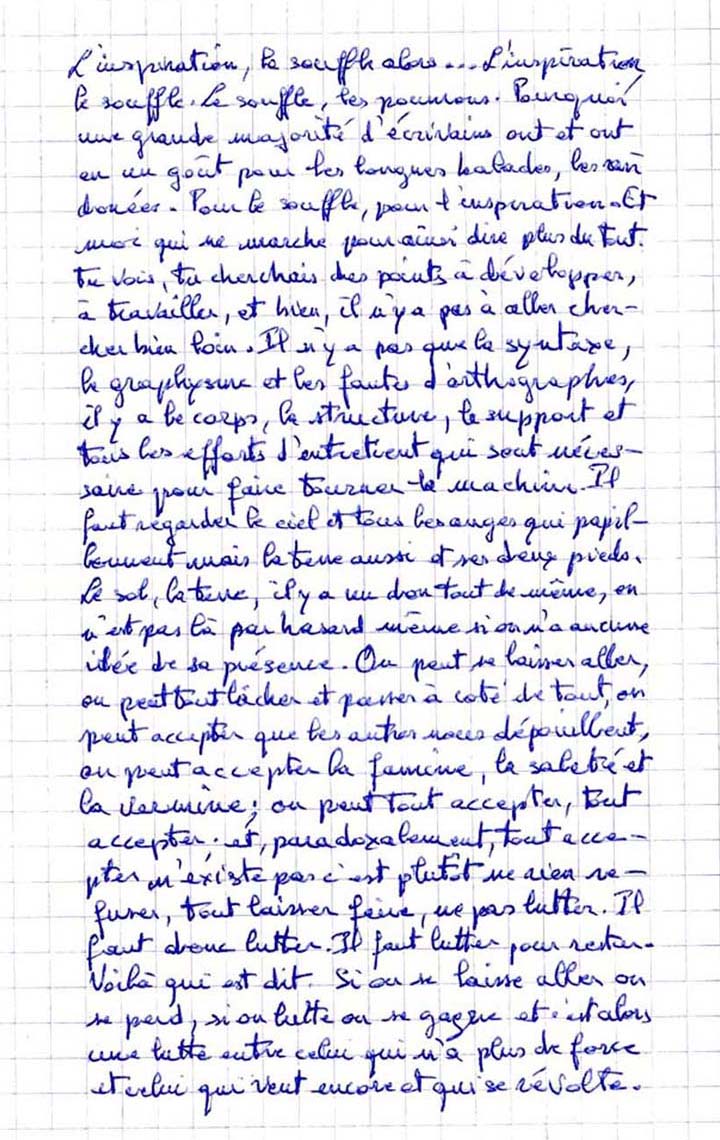 L'inspiration, le souffle alors... L'inspiration,
le souffle. Le souffle, les poumons. Pourquoi
une grande majorité d'écrivains ont et ont
eu un goût pour les longues balades, les ran
donées. Pour le souffle, pour l'inspiration. Et
moi qui ne marche pour ainsi dire plus du tout.
Tu vois, tu cherchais des points à développer,
à travailler, et bien, il n'y a pas à aller cher-
cher bien loin. Il n'y a pas que la syntaxe,
le graphysme et les fautes d'orthographes,
il y a le corps, la structure, le support et
tous les efforts d'entretient qui sont néces-
saire pour faire tourner la machine. Il
faut regarder le ciel et tous les anges qui papil-
lonnent mais la terre aussi et ses deux pieds.
Le sol, la terre, il y a un don tout de même, on
n'est pas là par hasard même si on n'a aucune
idée de sa présence. On peut se laisser aller,
on peut tout lâcher et passer à coté de tout, on
peut accepter que les autres nous dépouillent,
on peut accepter la famine, la saleté et
la vermine ; on peut tout accepter, tout
accepter. et, paradoxalement, tout acce-
pter n'existe pas c'est plutôt ne rien re-
fuser, tout laisser faire, ne pas lutter. Il
faut donc lutter. Il faut lutter pour rester.
Voilà qui est dit. Si on se laisse aller on
se perd, si on lutte on se gagne et c'est alors
une lutte entre celui qui n'a plus de force
et celui qui veut encore et qui se révolte.